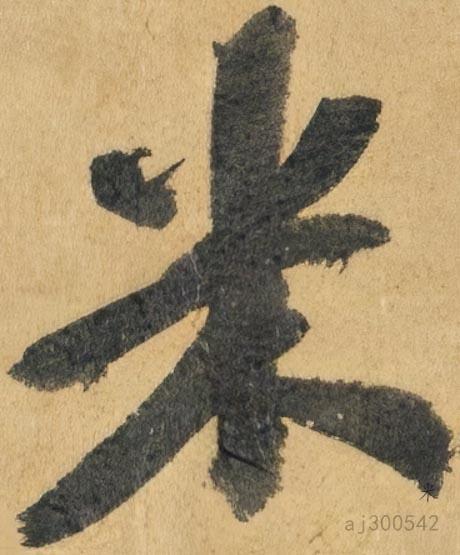 米
aj300542